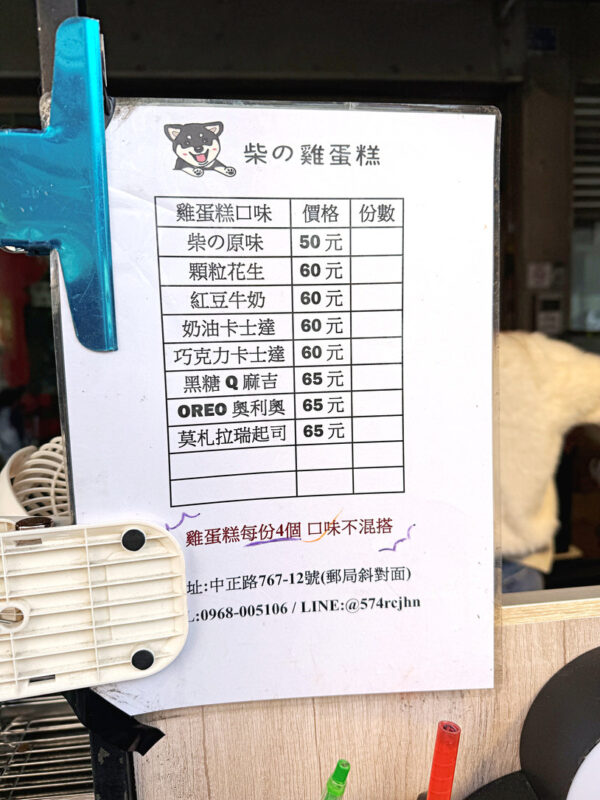 柴の雞蛋糕
雞蛋糕口味 價格 份數
柴の原味 50 元
顆粒花生 60 元
紅豆牛奶 60 元
奶油卡士達 60 元
巧克力卡士達 60 元
黑糖 Q 麻吉 65 元
OREO 奧利奧 65 元
莫札拉瑞起司 65 元
雞蛋糕每份4個 口味不混搭
址:中正路767-12號(郵局斜對面)
L:0968-005106 / LINE:@574rcjhn